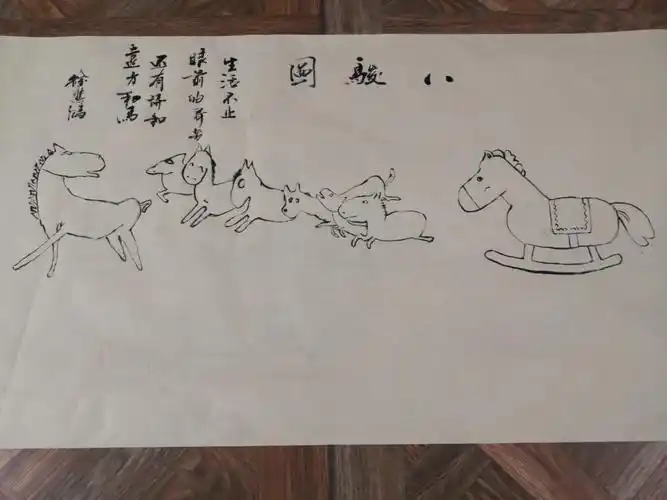 八駿圖
生活不止
眼前的苟且
还有诗和
遠方和馬
徐悲鸿